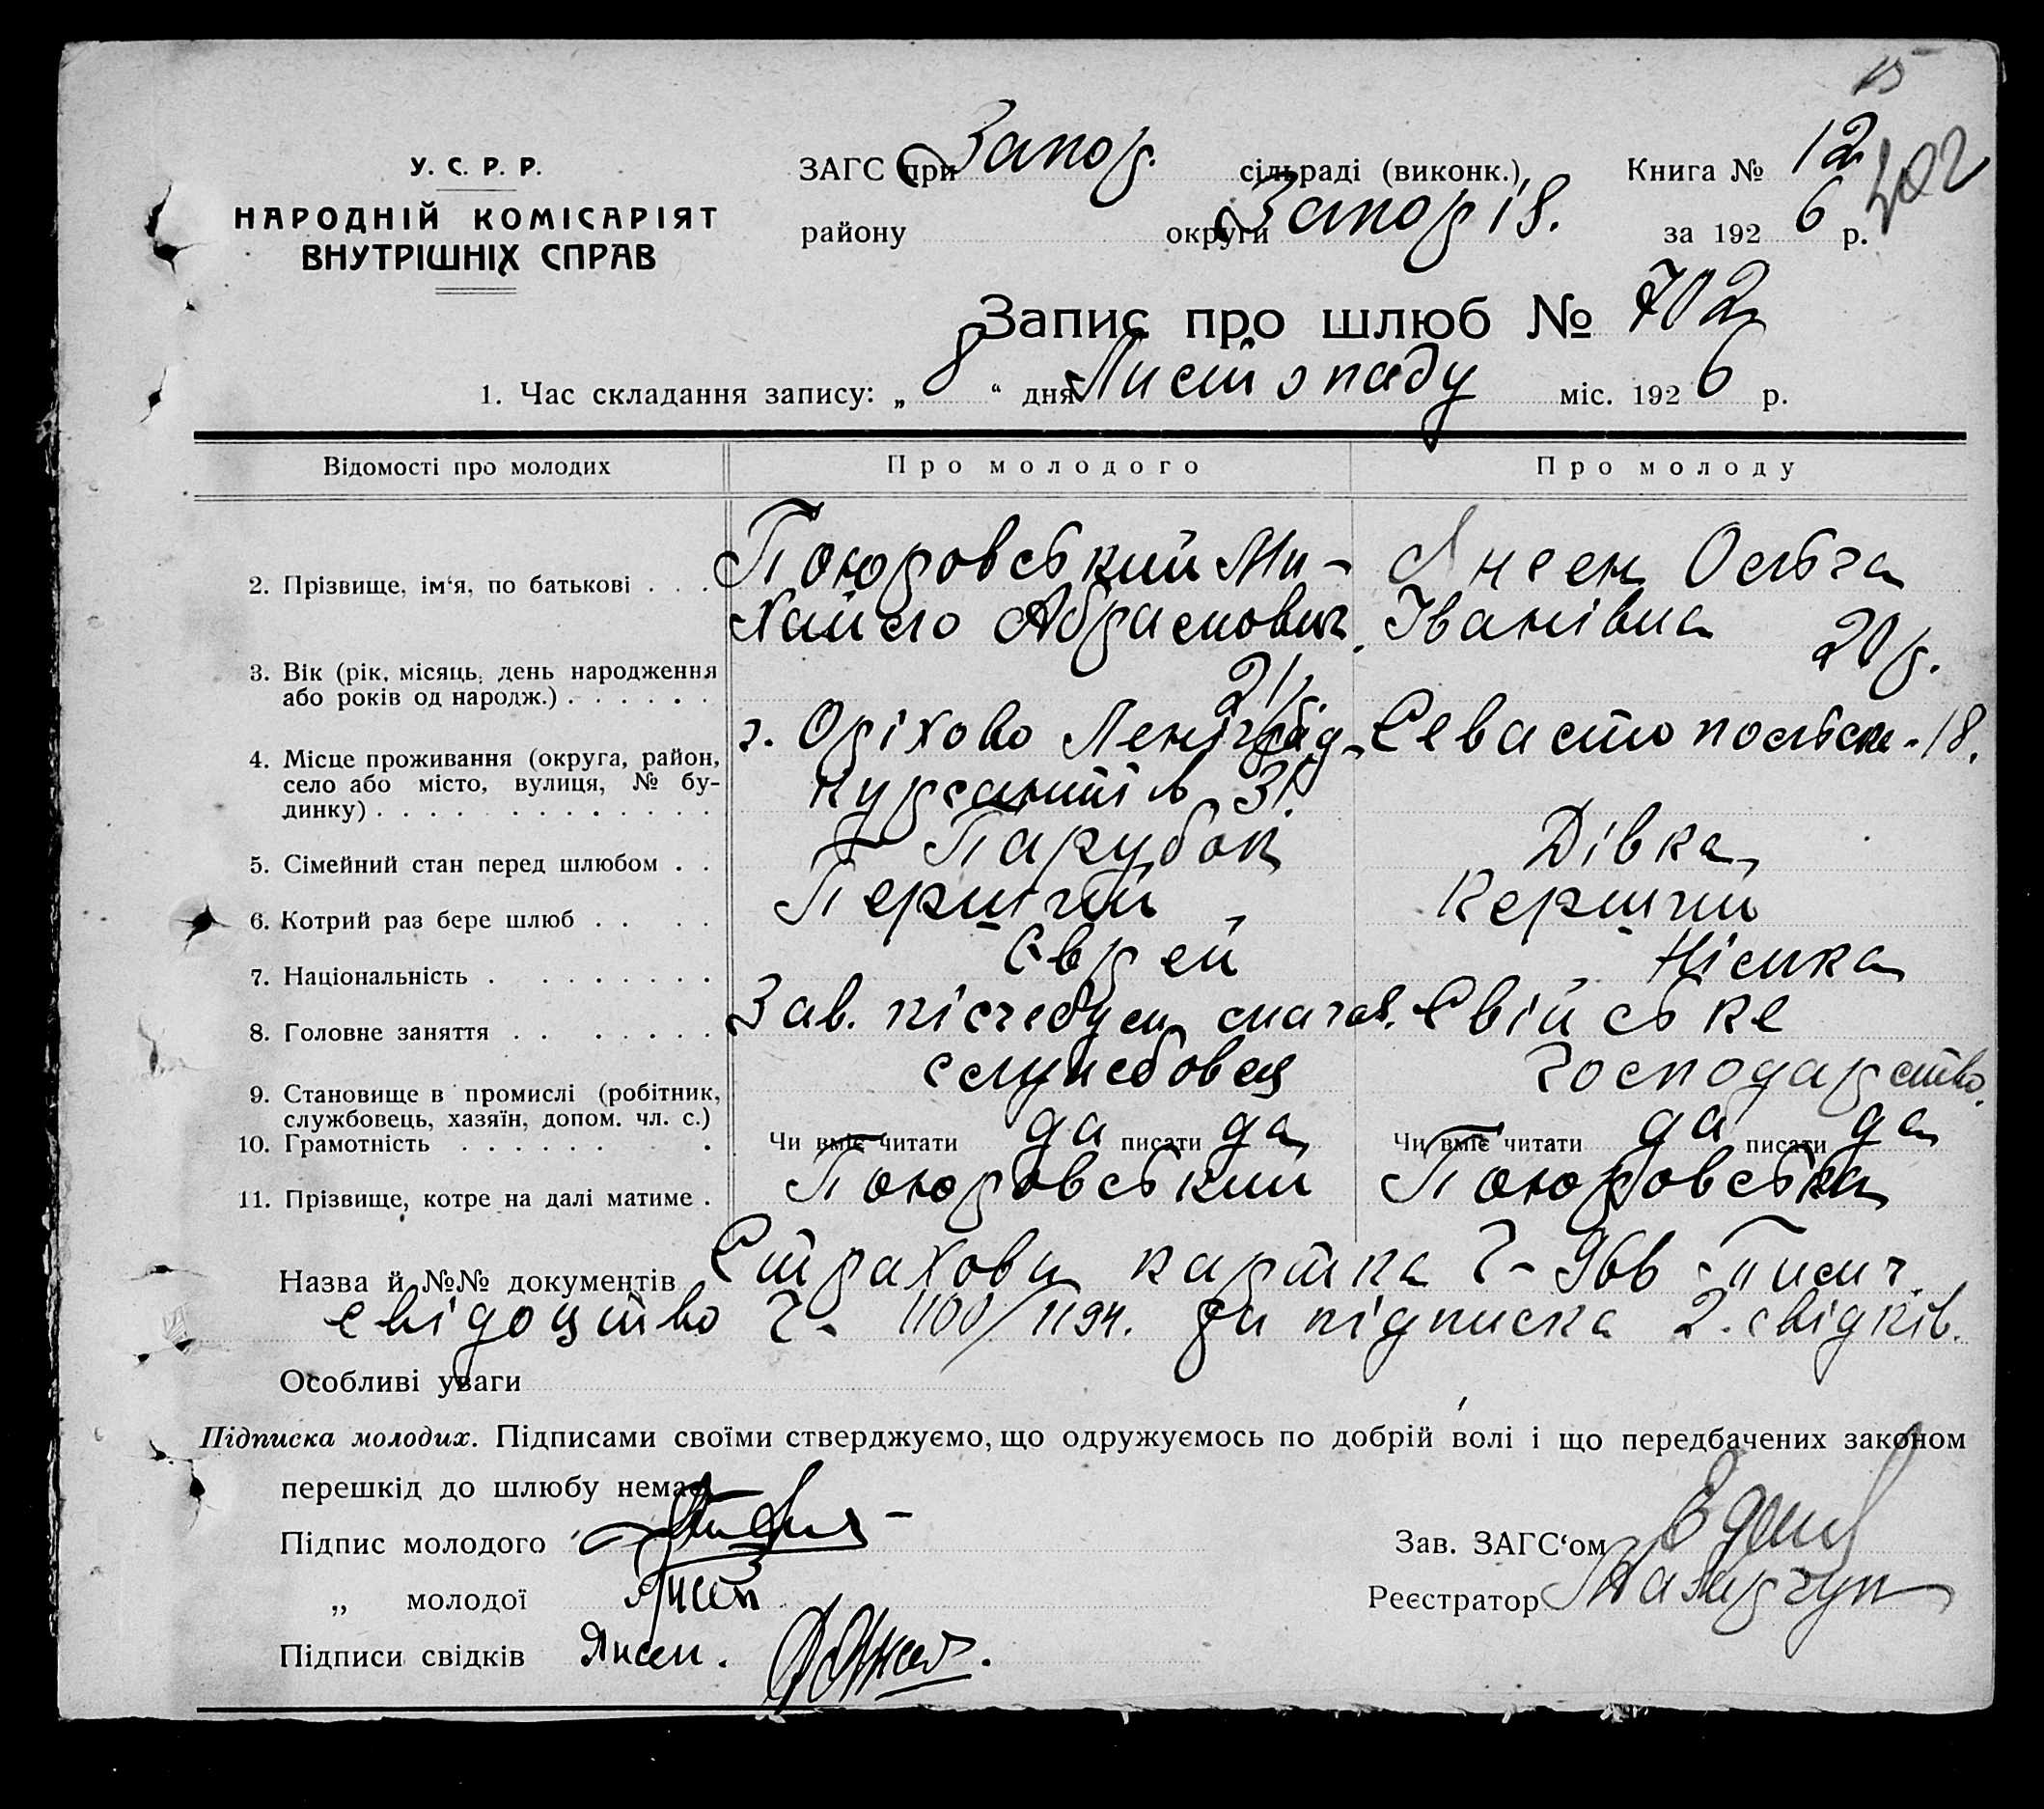 15
У. С. Р. Р.
НАРОДНІЙ КОМІСАРІЯТ
ВНУТРІШНІХ СПРАВ
ЗАГС при Запор. сільраді (виконк.) Книга № 12
702
району округи Запор 18. за 1926 р.
Запис про шлюб № 702
1. Час складання запису: „ 8 “ дня Листопаду міс. 1926 р.
Відомості про молодих Про молодого Про молоду
2. Прізвище, ім‘я, по батькові Поюровський Ми- Янсен Ольга
хайло Абрамович Іванівна
3. Вік (рік, місяць, день народження 21 20 р.
або років од народж.)
4. Місце проживання (округа, район, г. Оріхово Севастопольск. 18.
село або місто, вулиця, № бу- курсантів 31.
динку)
5. Сімейний стан перед шлюбом Парубок Дівка
6. Котрий раз бере шлюб Перший Перший
7. Національність Єврей Німка
8. Головне заняття Зав. магаз. Свійське
9. Становище в промислі (робітник, службовец господарство.
службовець, хазяїн, допом. чл. с.)
10. Грамотність Чи вміє читати да писати да Чи вміє читати да писати да
11. Прізвище, котре на далі матиме Поюровський Поюровська
Назва й №№ документів Страхова картка Ч-
свідоцтво Ч- 1100/1194. підписка 2. свідків.
Особливі уваги
Підписка молодих. Підписами своїми стверджуємо, що одружуємось по добрій волі і що передбачених законом
перешкід до шлюбу немає
Підпис молодого
Зав. ЗАГС‘ом
„ молодої Янсен
Реєстратор
Підписи свідків Янсен.